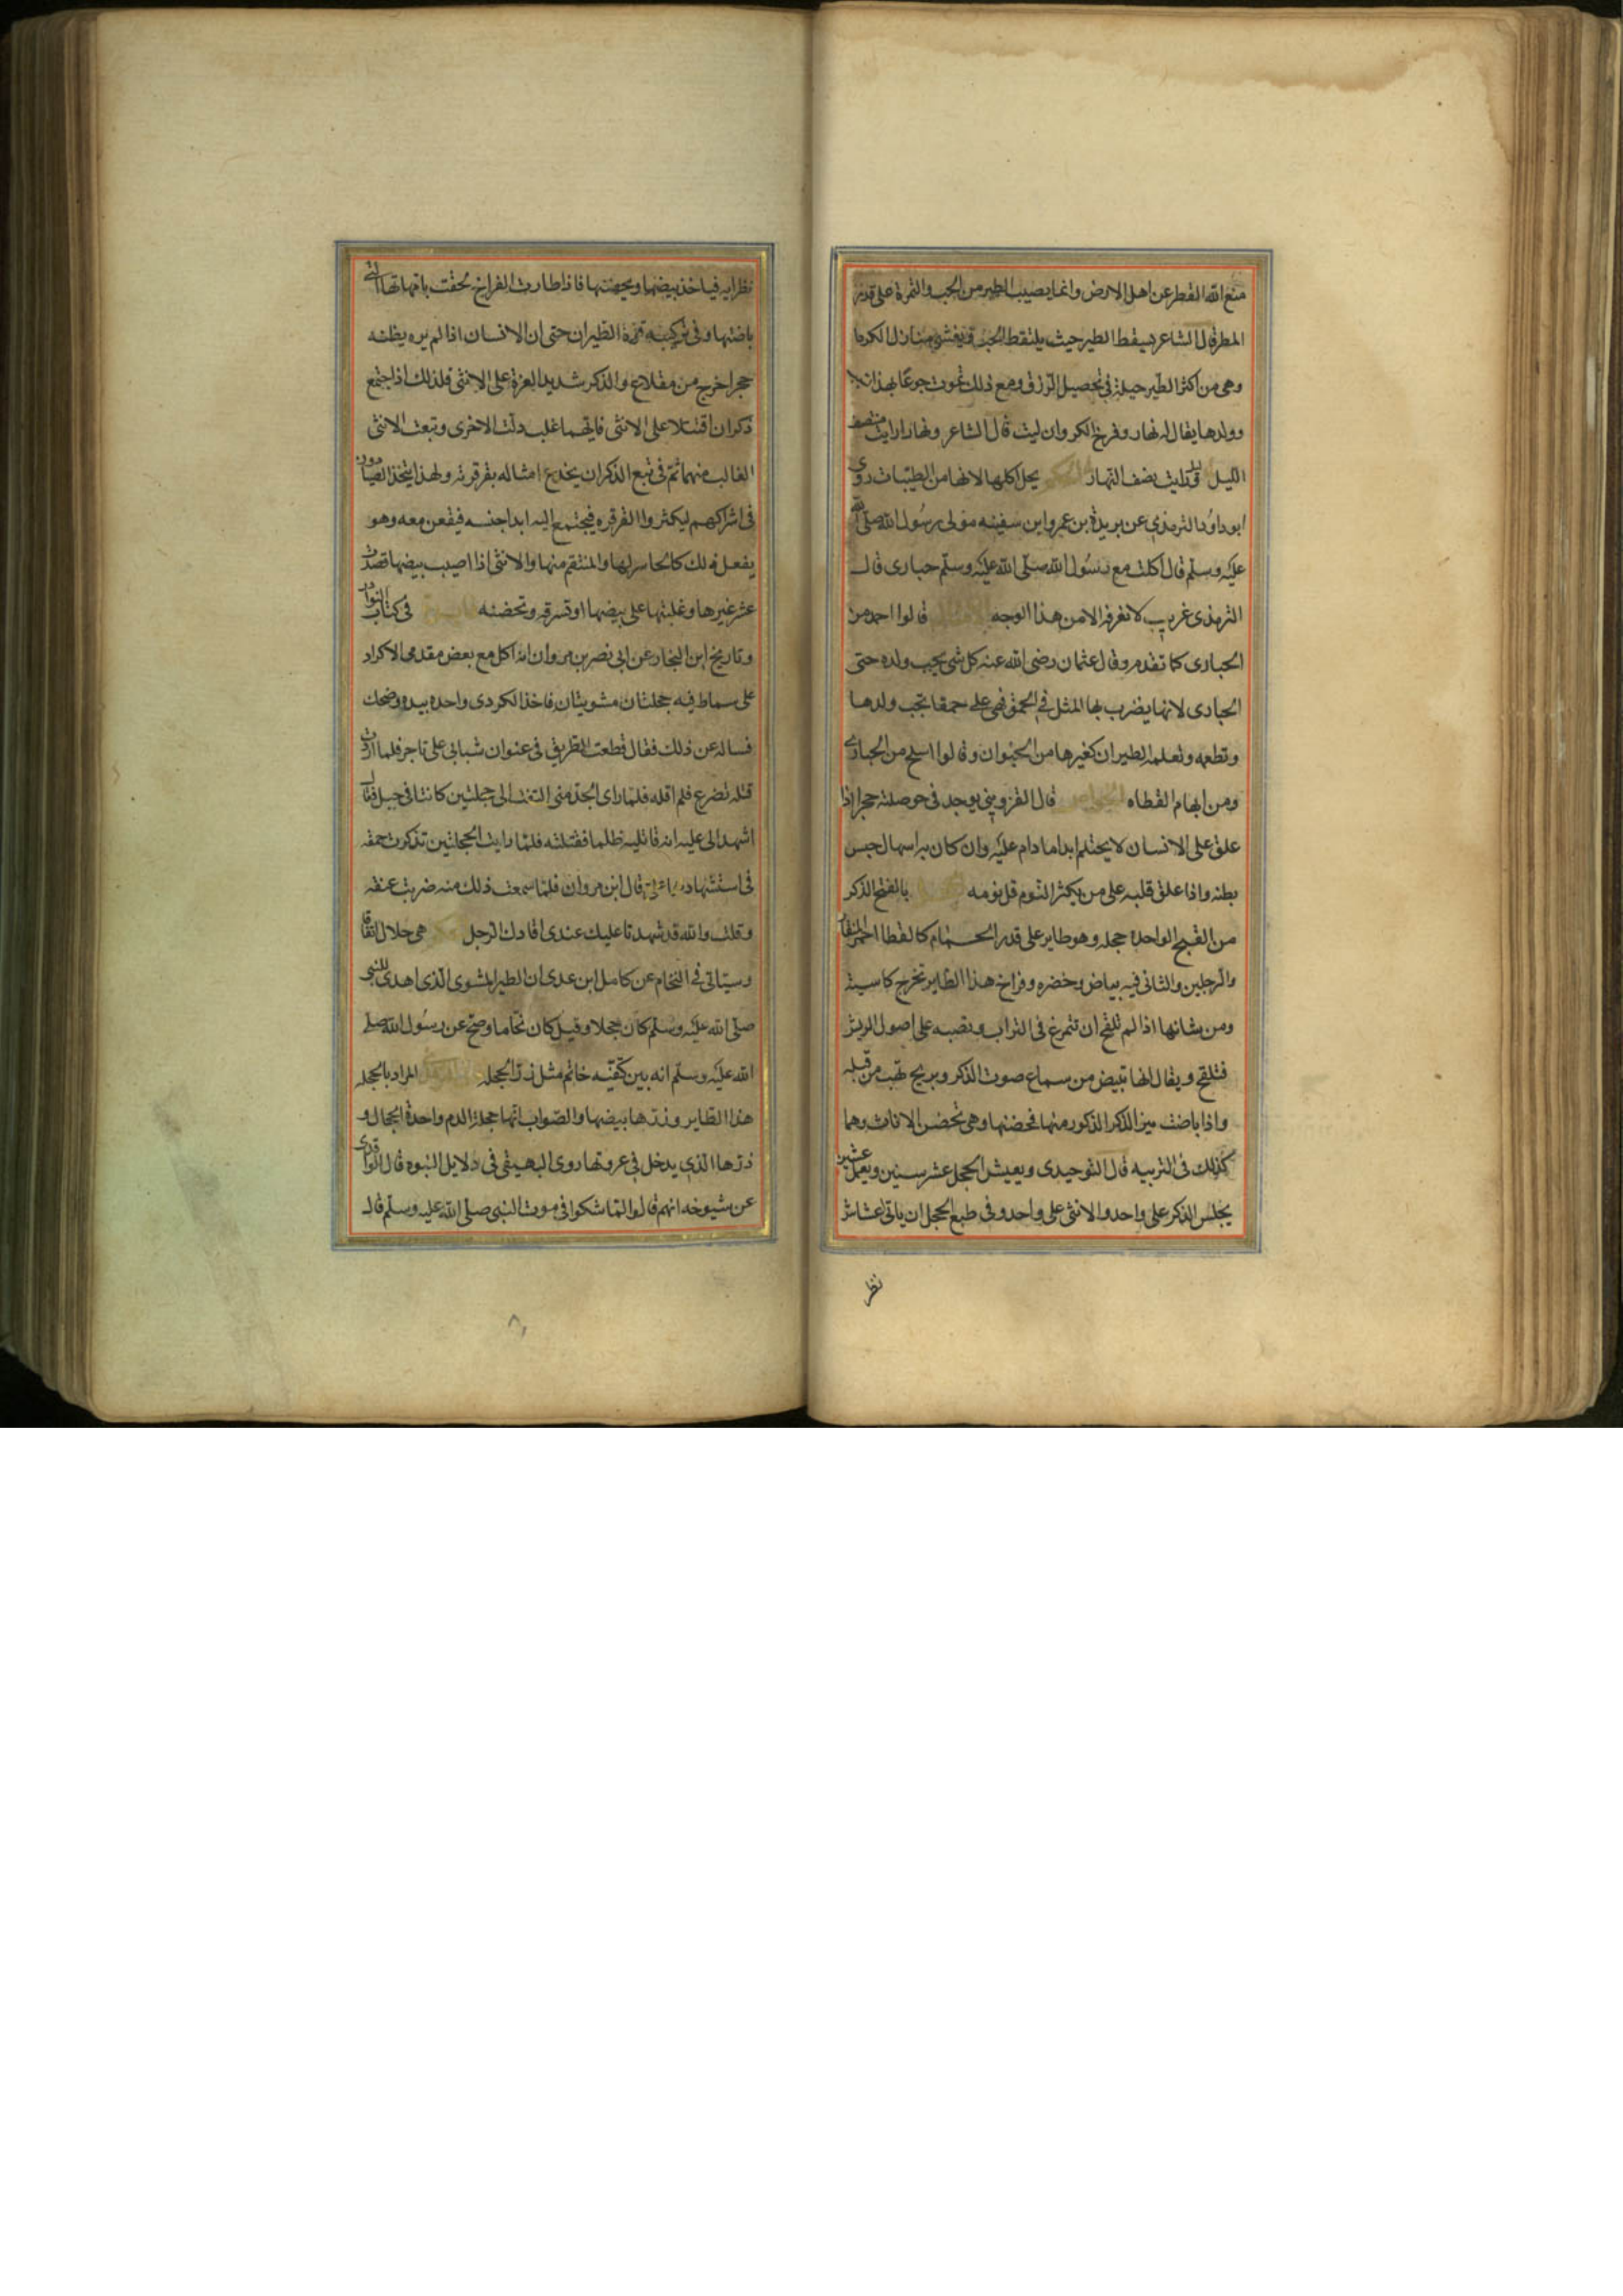 منع الله القطر عن اهل الارض وانما يصيب الطير من الحب والثمرة على قدر
المطر قال الشاعر يسقط الطير حيث يلتقط الحب ويغشى منازل الكرما
وهى من اكثر الطير حيلة فى تحصيل الرزق ومع ذلك تموت جوعا بهذا
وولدها يقال له نهار وفرخ الكروان ليث قال الشاعر ونهارا رايت منتصف
الليل وليث نصف النهار يحل اكلها لانها من الطيبات روى
ابو داود الترمذى عن بريدة بن عمر وابن سفينه مولى رسول الله صلى الله
عليه وسلم قال اكلت مع رسول الله صلى الله عليه وسلم حبارى قال
الترمذى غريب لا نعرفه الا من هذا الوجه قالوا احمد من
الحبارى كما تقدم وقال عثمان رضى الله عنه كل شى يحب ولده حتى
الحبارى لانها يضرب بها المثل فى الحمق فهى على حمقا تحب ولدها
وتطعه وتعلمه الطيران كغيرها من الحيوان وقالوا اسلح من الحبارى
ومن ابهام القطاه الخواص قال القزوينى يوجد فى حوصلته حجر اذا
علق على الانسان لا يحتلم ابدا ما دام عليه وان كان به اسهال حبس
بطنه واذا علق قلبه على من يكثر النوم قل نومه بالفتح الذكر
من القبج الواحده حجله وهو طاير على قدر الحمام كالقطا احمر المنقار
والرجلين والثانى فيه بياض وخضره وفراخ هذا الطاير تخرج كاسية
ومن شانها اذا لم تلقح ان تتمرغ فى التراب وتصبه على اصول الريش
فتلقح ويقال انها تبيض من سماع صوت الذكر وبريح تهب من قبله
واذا باضت ميز الذكر الذكور منها فحضنها وهى تحضن الاناث وهما
كذلك فى التربيه قال التوحيدى ويعيش الحجل عشر سنين ويعمل عشين
يجلس الذكر على واحد والانثى على واحد وفى طبع الحجل ان ياتى اعشاش
نظر
نظرايه فياخذ بيضها ويحضنها فاذا طارت الفراخ لحقت بامهاتها التى
باضتها وفى تركيبه قوة الطيران حتى ان الانسان اذا لم يره يظنه
حجرا خرج من مقلاع والذكر شديد الغزة على الانثى فلذلك اذا اجتمع
ذكران اقتتلا على الانثى فايهما غلب دلت الاخرى وتبعت الانثى
الغالب منهما ثم فى تبع الذكر ان يخدع امثاله بقرقرته ولهذا يتخذ الصيادون
فى اشراكهم ليكثروا القرقره فيجتمع اليه ابدا جنسه فيقعن معه وهو
يفعل ذلك كالحاسر لها والمنتقم منها والانثى اذا اصيب بيضها قصدت
عش غيرها وغلبتها على بيضها او تسرقه وتحضنه فى كتاب النوادر
وتاريخ ابن النجار عن ابى نصر بن مروان انه اكل مع بعض مقدمى الاكراد
على سماط فيه حجلتان مشويتان فاخذ الكردى واحده بيده وضحك
فساله عن ذلك فقال قطعت الطريق فى عنوان شبابى على تاجر فلما اردت
قتله تضرع فلم اقله فلما راى الجد منى التفت الى حجلتين كانتا فى جبل فقال
اشهدا لى عليه انه قاتليه ظلما فقتلته فلما رايت الحجلتين تذكرت حمقه
فى استشهاده قال ابن مروان فلما سمعت ذلك منه ضربت عنقه
وقلت والله قد شهدتا عليك عندى اقادك الرجل هى حلال اتفاقا
وسياتى فى النحام عن كامل ابن عدى ان الطير المشوى الذى اهدى للنبى
صلى الله عليه وسلم كان حجلا وقيل كان نحاما وصح عن رسول الله صلى
الله عليه وسلم انه بين كتفيه خاتم مثل زر الحجله المراد بالحجله
هذا الطاير وزرها بيضها والصواب انها حجلة الدم واحدة الحجال و
زرها الذى يدخل فى عروتها روى البهيقى فى دلايل النبوه قال الواقدى
عن شيوخه انهم قالوا لما شكوا فى موت النبى صلى الله عليه وسلم قال